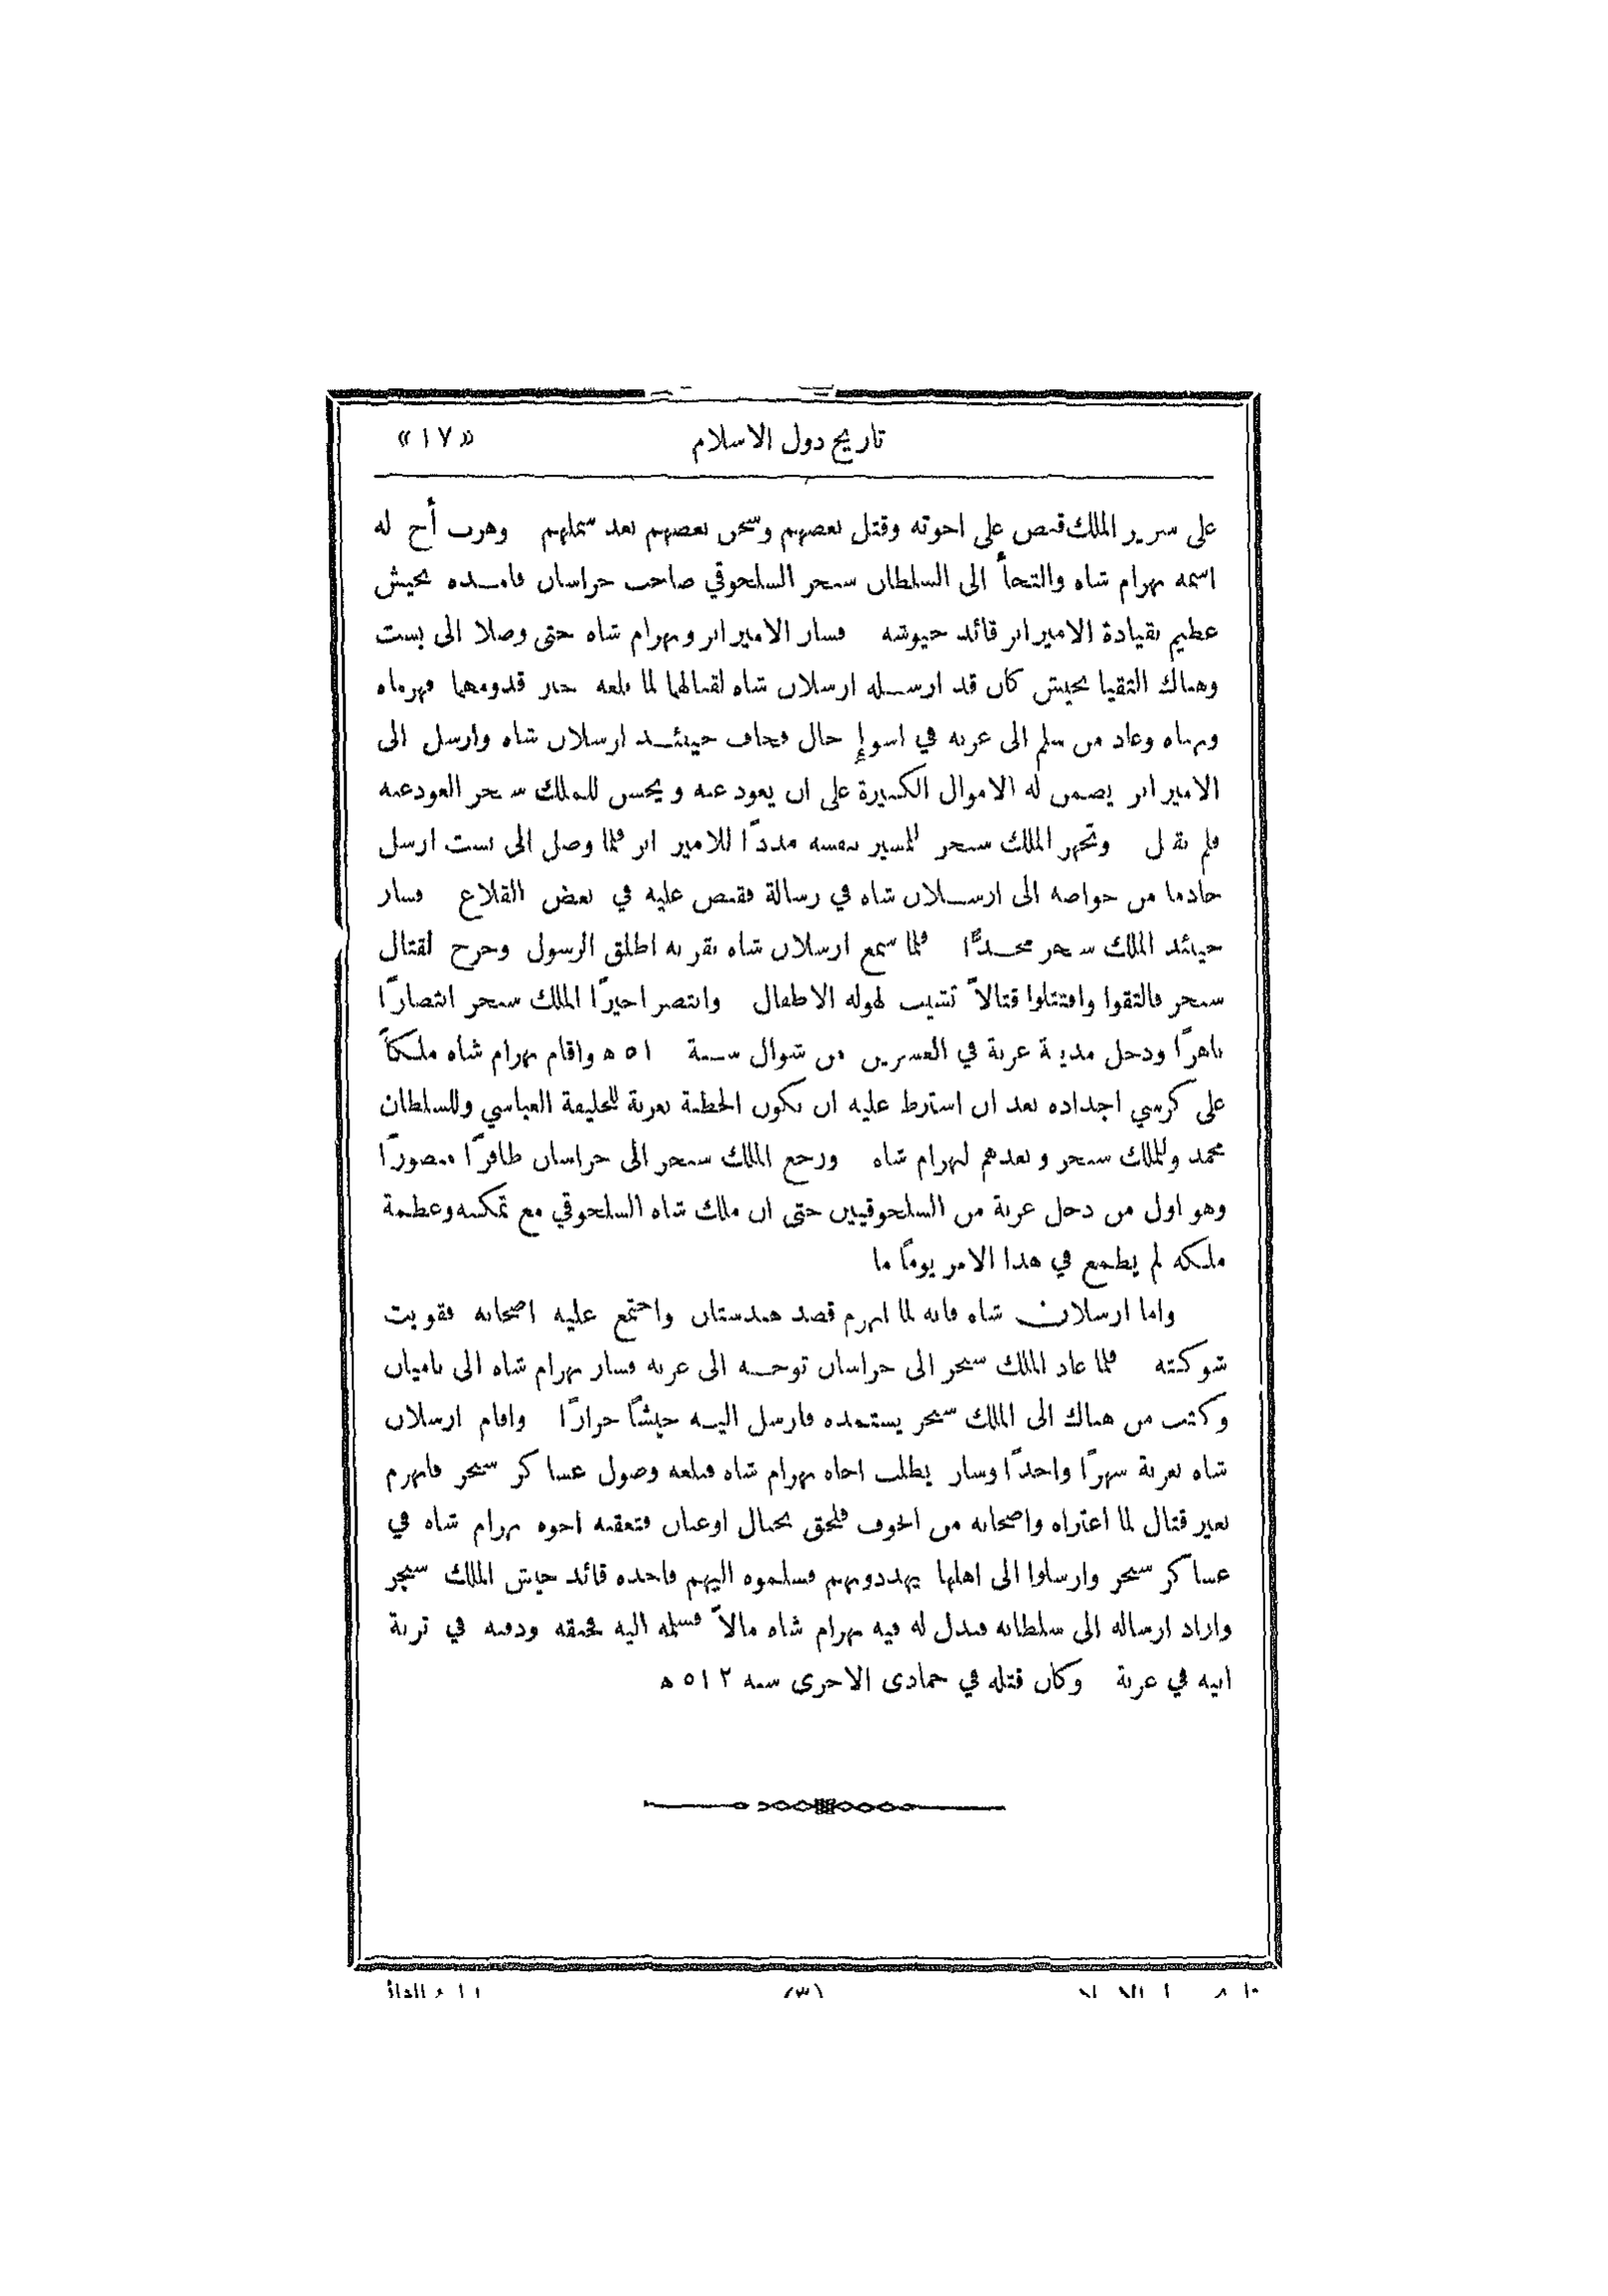 تاريخ دول الاسلام «١٧»
على سرير الملك قبض على اخوته وقتل بعضهم وسجن بعضهم بعد سملهم وهرب أخ له
اسمه بهرام شاه والتجأ الى السلطان سنجر السلجوقي صاحب خراسان فامده بجيش
عظيم بقيادة الامير انر قائد جيوشه فسار الامير انر وبهرام شاه حتى وصلا الى بست
وهناك التقيا بجيش كان قد ارسله ارسلان شاه لقتالهما لما بلغه خبر قدومهما فهزماه
وعاد من سلم الى غزنة في اسوإ حال فخاف حينئذ ارسلان شاه وارسل الى
الامير انر يضمن له الاموال الكثيرة على ان يعود عنه ويحسن للملك سنجر العود عنه
فلم يقبل وتجهز الملك سنجر للمسير بنفسه مدداً للامير انر فلما وصل الى بست ارسل
خادما من خواصه الى ارسلان شاه في رسالة فقبض عليه في بعض القلاع فسار
حينئذ الملك سنجر مجدًّا فلما سمع ارسلان شاه بقربه اطلق الرسول وخرج لقتال
سنجر فالتقوا واقتتلوا قتالاً تشيب لهوله الاطفال وانتصر اخيرًا الملك سنجر انتصارًا
باهرًا ودخل مدينة غزنة في العشرين من شوال سنة ٥١ ه واقام بهرام شاه ملكاً
على كرسي اجداده بعد ان اشترط عليه ان تكون الخطبة بغزنة للخليفة العباسي وللسلطان
محمد وللملك سنجر وبعدهم لبهرام شاه ورجع الملك سنجر الى خراسان ظافرًا منصورًا
وهو اول من دخل غزنة من السلجوقيين حتى ان ملك شاه السلجوقي مع تمكنه وعظمة
ملكه لم يطمع في هذا الامر يوماً ما
واما ارسلان شاه فانه لما انهزم قصد هندستان واجتمع عليه اصحابه فقويت
شوكته فلما عاد الملك سنجر الى خراسان توجه الى غزنة فسار بهرام شاه الى باميان
وكتب من هناك الى الملك سنجر يستمده فارسل اليه جيشاً جرارًا واقام ارسلان
شاه بغزنة شهرًا واحدًا وسار يطلب اخاه بهرام شاه فبلغه وصول عساكر سنجر فانهزم
بغير قتال لما اعتراه واصحابه من الخوف فلحق بجبال اوغنان فتعقبه اخوه بهرام شاه في
عساكر سنجر وارسلوا الى اهلها يهددونهم فسلموه اليهم فاخذه قائد جيش الملك سنجر
واراد ارساله الى سلطانه فبذل له فيه بهرام شاه مالاً فسلمه اليه فخنقه ودفنه في تربة
ابيه في غزنة وكان قتله في جمادى الاخرى سنة ٥١٢ ه
(٣)